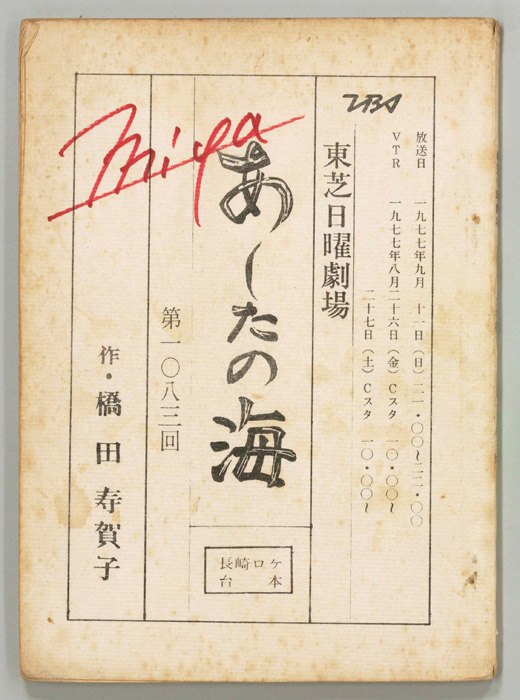 TBS
放送日 一九七七年九月 十一日(日)二一・〇〇~二二・〇〇
VTR 一九七七年八月二十六日(金)Cスタ 一〇・〇〇~
二十七日(土)Cスタ 一〇・〇〇~
東芝日曜劇場
Miya
あしたの海
長崎ロケ
台本
第一〇八三回
作・橋田寿賀子